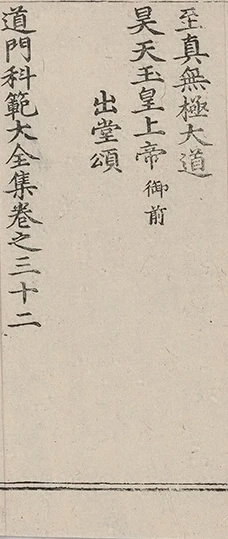 至真無極大道
昊天玉皇上帝御前
出堂頌
道門科範大全集卷之三十二